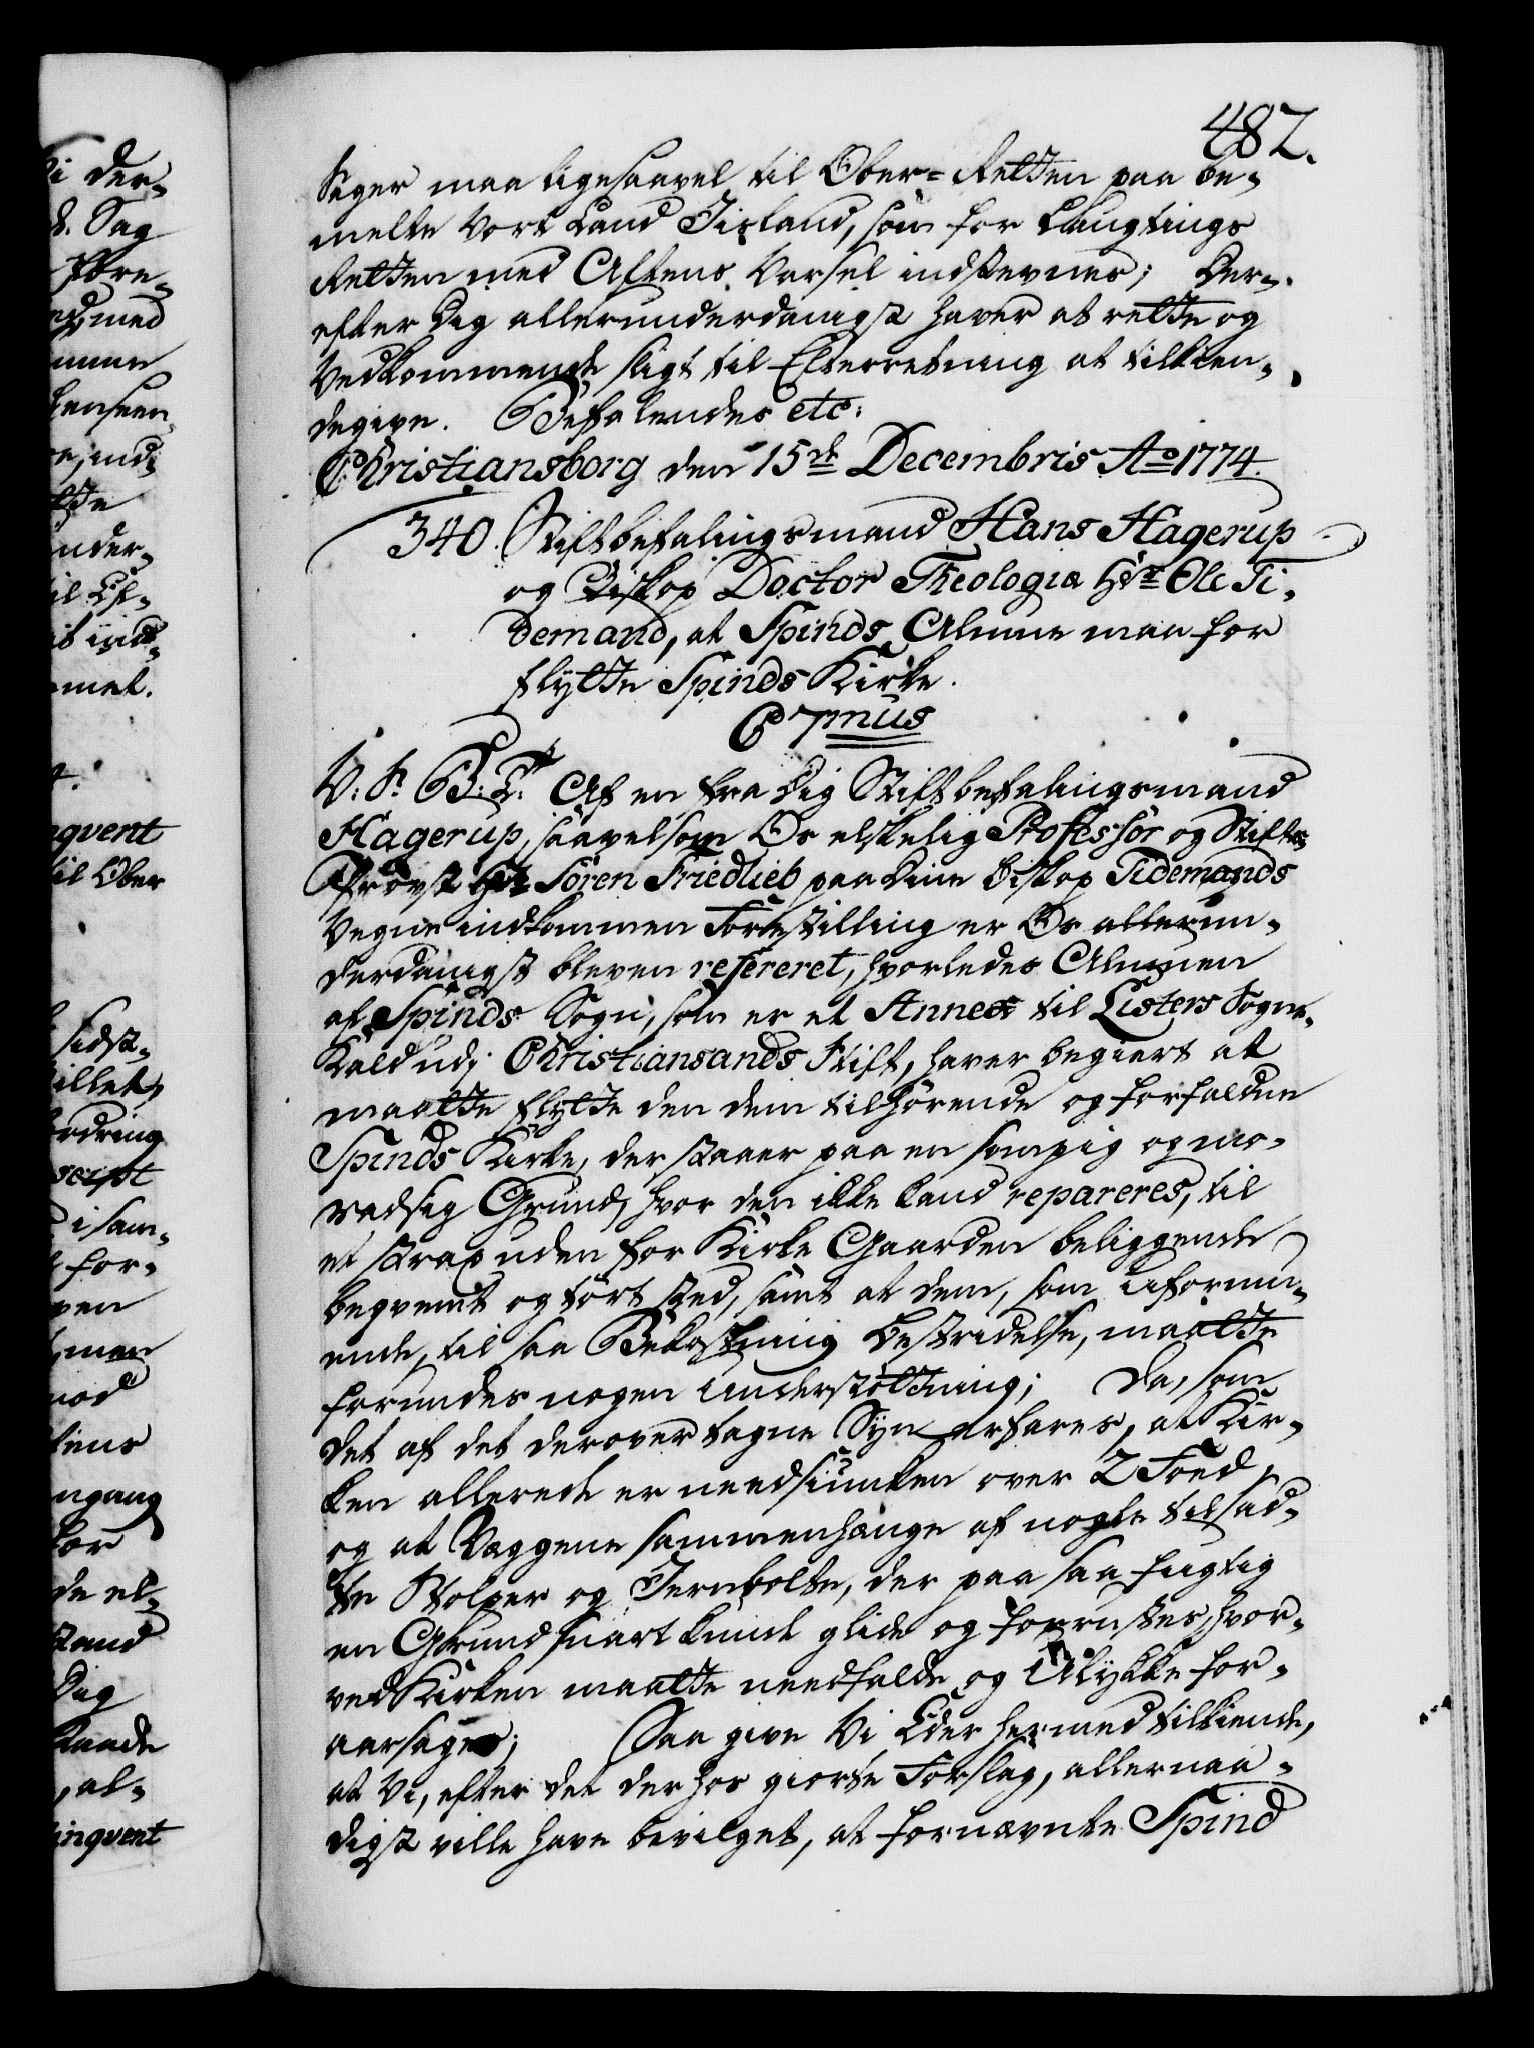 482.
Sager maa ligesaavel til Ober=Retten paa be-
melte Vort Land Iisland, som for Laugtings
Retten med Aftens Varsel indstevnes; Der-
efter Dig allerunderdanigst haver at rette og
Vedkommende sligt til Efterretning at tilkien-
degive. Befalendes etc:
Christiansborg den 15de Decembris Ao 1774.
340. Stiftbefalingsmand Hans Hagerup
og Biskop Doctor Theologiæ Hr Ole Ti-
demand, at Spinds Almue maa for
flytte Spinds Kirke.
C 7mus
V: S: B: T: Af en fra Dig Stiftbefalingsmand
Hagerup, saavelsom Os elskelig Professor og Stifts
Provst Hr Sören Friedlieb paa Din Biskop Tidemands
Vegne indkommen Forestilling er Os allerun-
derdanigst bleven refereret, hvorledes Almuen
af Spinds Sogn, som er et Annex til Listers Sogne-
Kald udi Christiansands Stift, haver begiert at
maatte flytte den dem tilhörende og forfaldne
Spinds Kirke, der staaer paa en sompig og mo-
radsig Grund, hvor den ikke kand repareres, til
et strax uden for Kirke Gaarden beliggende
beqvemt og tört sted, samt at dem, som uformu-
ende, til saa Bekostning Bestridelse, maatte
forundes nogen Understöttning; Da, som
det af det derover tagne Syn erfares, at Kir-
ken allerede er needsiunken over 2 Foed,
og at Væggene sammenhænge af nogle tilsad-
te Stolper og Jernbolte, der paa saa fugtig
en Grund snart kunde glide og forrustes, hvor-
ved Kirken maatte needfalde og Ulykke for-
aarsages; Saa give Vi Eder hermed tilkiende,
at Vi, efter det derhos giorte Forslag, allernaa-
digst ville have bevilget, at fornævnte Spind